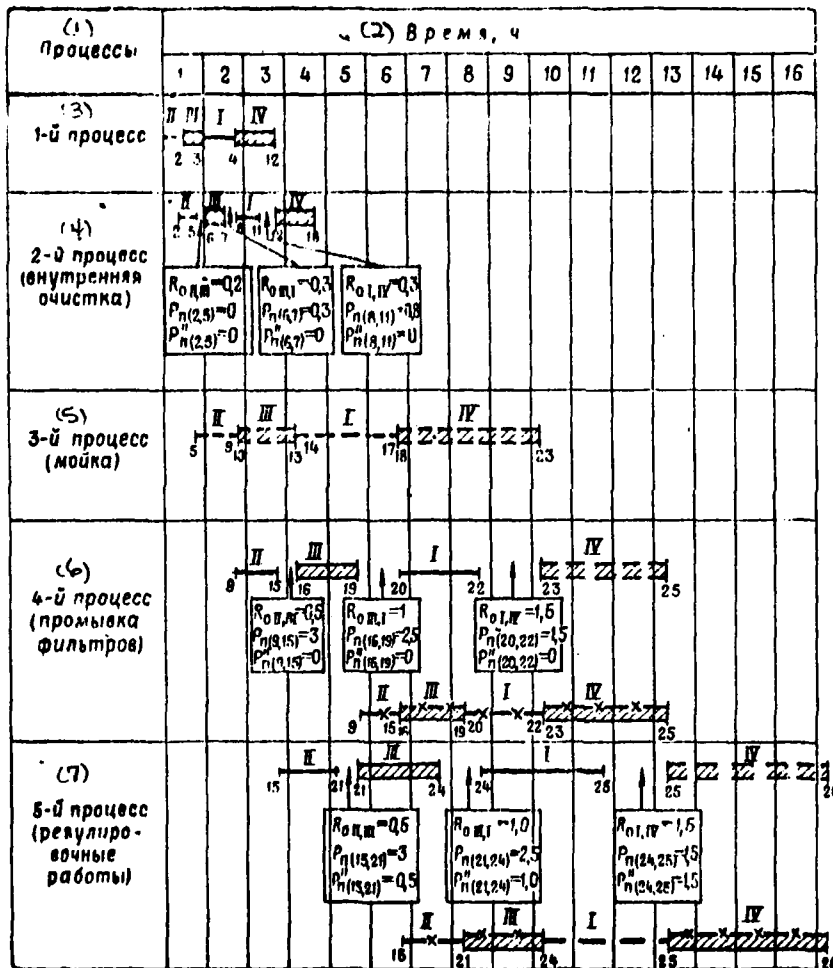 (1)
Процессы
(2) Время, ч
1 2 3 4 5 6 7 8 9 10 11 12 13 14 15 16
(3)
1-й процесс
II III I IV
2 3 4 12
(4)
2-й процесс
(внутренняя
очистка)
II III I IV
2 5 6 7 8 11
R₀ II,III=0,2
Pп(2,5)=0
P"п(2,5)=0
R₀ III,I=0,3
Pп(6,7)=0,3
P"п(6,7)=0
R₀ I,IV=0,3
Pп(8,11)=0,8
P"п(8,11)=0
(5)
3-й процесс
(мойка)
II III I IV
5 9 10 13 14 17 18 23
(6)
4-й процесс
(промывка
фильтров)
II III I IV
9 15 16 19 20 22 23 25
R₀ II,III=0,5
Pп(9,15)=3
P"п(9,15)=0
R₀ III,I=1
Pп(16,19)=2,5
P"п(16,19)=0
R₀ I,IV=1,5
Pп(20,22)=1,5
P"п(20,22)=0
II III I IV
9 15 16 19 20 22 23 25
(7)
5-й процесс
(регулиро-
вочные
работы)
II III I IV
15 21 21 24 24 25
R₀ II,III=0,5
Pп(15,21)=3
P"п(15,21)=0,5
R₀ III,I=1,0
Pп(21,24)=2,5
P"п(21,24)=1,0
R₀ I,IV=1,5
Pп(24,25)=1,5
P"п(24,25)=1,5
II III I IV
16 21 24 25